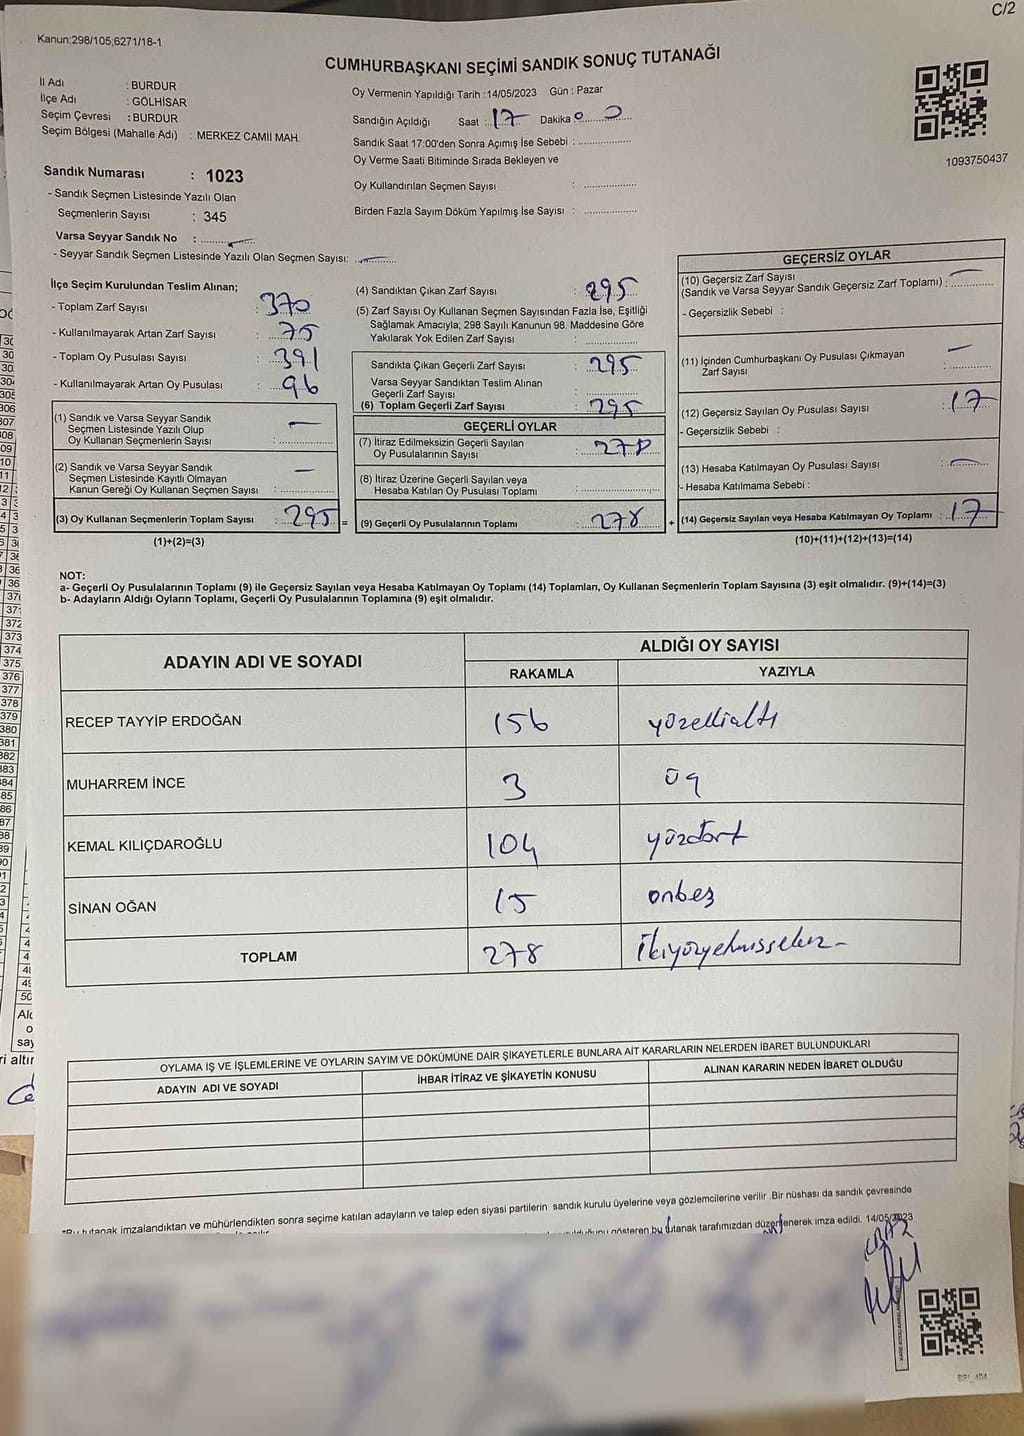 C/2
Kanun;298/105;6271/18-1
CUMHURBAŞKANI SEÇİMİ SANDIK SONUÇ TUTANAĞI
İl Adı : BURDUR
İlçe Adı : GÖLHİSAR
Seçim Çevresi : BURDUR
Seçim Bölgesi (Mahalle Adı) : MERKEZ CAMİİ MAH.
Sandık Numarası : 1023
- Sandık Seçmen Listesinde Yazılı Olan
Seçmenlerin Sayısı : 345
Varsa Seyyar Sandık No :
- Seyyar Sandık Seçmen Listesinde Yazılı Olan Seçmen Sayısı:
Oy Vermenin Yapıldığı Tarih :14/05/2023 Gün : Pazar
Sandığın Açıldığı Saat : 17 Dakika
Sandık Saat 17:00'den Sonra Açımış İse Sebebi :
Oy Verme Saati Bitiminde Sırada Bekleyen ve
Oy Kullandırılan Seçmen Sayısı :
Birden Fazla Sayım Döküm Yapılmış İse Sayısı :
1093750437
İlçe Seçim Kurulundan Teslim Alınan;
- Toplam Zarf Sayısı : 370
- Kullanılmayarak Artan Zarf Sayısı : 75
- Toplam Oy Pusulası Sayısı : 391
- Kullanılmayarak Artan Oy Pusulası : 96
(1) Sandık ve Varsa Seyyar Sandık
Seçmen Listesinde Yazılı Olup
Oy Kullanan Seçmenlerin Sayısı : —
(2) Sandık ve Varsa Seyyar Sandık
Seçmen Listesinde Kayıtlı Olmayan
Kanun Gereği Oy Kullanan Seçmen Sayısı : —
(3) Oy Kullanan Seçmenlerin Toplam Sayısı : 295 =
(1)+(2)=(3)
(4) Sandıktan Çıkan Zarf Sayısı : 295
(5) Zarf Sayısı Oy Kullanan Seçmen Sayısından Fazla İse, Eşitliği
Sağlamak Amacıyla; 298 Sayılı Kanunun 98. Maddesine Göre
Yakılarak Yok Edilen Zarf Sayısı :
Sandıkta Çıkan Geçerli Zarf Sayısı : 295
Varsa Seyyar Sandıktan Teslim Alınan
Geçerli Zarf Sayısı :
(6) Toplam Geçerli Zarf Sayısı : 295
GEÇERLİ OYLAR
(7) İtiraz Edilmeksizin Geçerli Sayılan
Oy Pusulalarının Sayısı : 278
(8) İtiraz Üzerine Geçerli Sayılan veya
Hesaba Katılan Oy Pusulası Toplamı :
(9) Geçerli Oy Pusulalarının Toplamı : 278 +
GEÇERSİZ OYLAR
(10) Geçersiz Zarf Sayısı
(Sandık ve Varsa Seyyar Sandık Geçersiz Zarf Toplamı) : —
- Geçersizlik Sebebi :
(11) İçinden Cumhurbaşkanı Oy Pusulası Çıkmayan
Zarf Sayısı : —
(12) Geçersiz Sayılan Oy Pusulası Sayısı : 17
- Geçersizlik Sebebi :
(13) Hesaba Katılmayan Oy Pusulası Sayısı : —
- Hesaba Katılmama Sebebi :
(14) Geçersiz Sayılan veya Hesaba Katılmayan Oy Toplamı : 17
(10)+(11)+(12)+(13)=(14)
NOT:
a- Geçerli Oy Pusulalarının Toplamı (9) ile Geçersiz Sayılan veya Hesaba Katılmayan Oy Toplamı (14) Toplamları, Oy Kullanan Seçmenlerin Toplam Sayısına (3) eşit olmalıdır. (9)+(14)=(3)
b- Adayların Aldığı Oyların Toplamı, Geçerli Oy Pusulalarının Toplamına (9) eşit olmalıdır.
ADAYIN ADI VE SOYADI
ALDIĞI OY SAYISI
RAKAMLA YAZIYLA
RECEP TAYYİP ERDOĞAN 156 yüzellialtı
MUHARREM İNCE 3 üç
KEMAL KILIÇDAROĞLU 104 yüzdört
SİNAN OĞAN 15 onbeş
TOPLAM 278 ikiyüzyetmişsekiz
OYLAMA İŞ VE İŞLEMLERİNE VE OYLARIN SAYIM VE DÖKÜMÜNE DAİR ŞİKAYETLERLE BUNLARA AİT KARARLARIN NELERDEN İBARET BULUNDUKLARI
ADAYIN ADI VE SOYADI İHBAR İTİRAZ VE ŞİKAYETİN KONUSU ALINAN KARARIN NEDEN İBARET OLDUĞU
*Bu tutanak imzalandıktan ve mühürlendikten sonra seçime katılan adayların ve talep eden siyasi partilerin sandık kurulu üyelerine veya gözlemcilerine verilir .Bir nüshası da sandık çevresinde
gösteren bu tutanak tarafımızdan düzenlenerek imza edildi. 14/05/2023